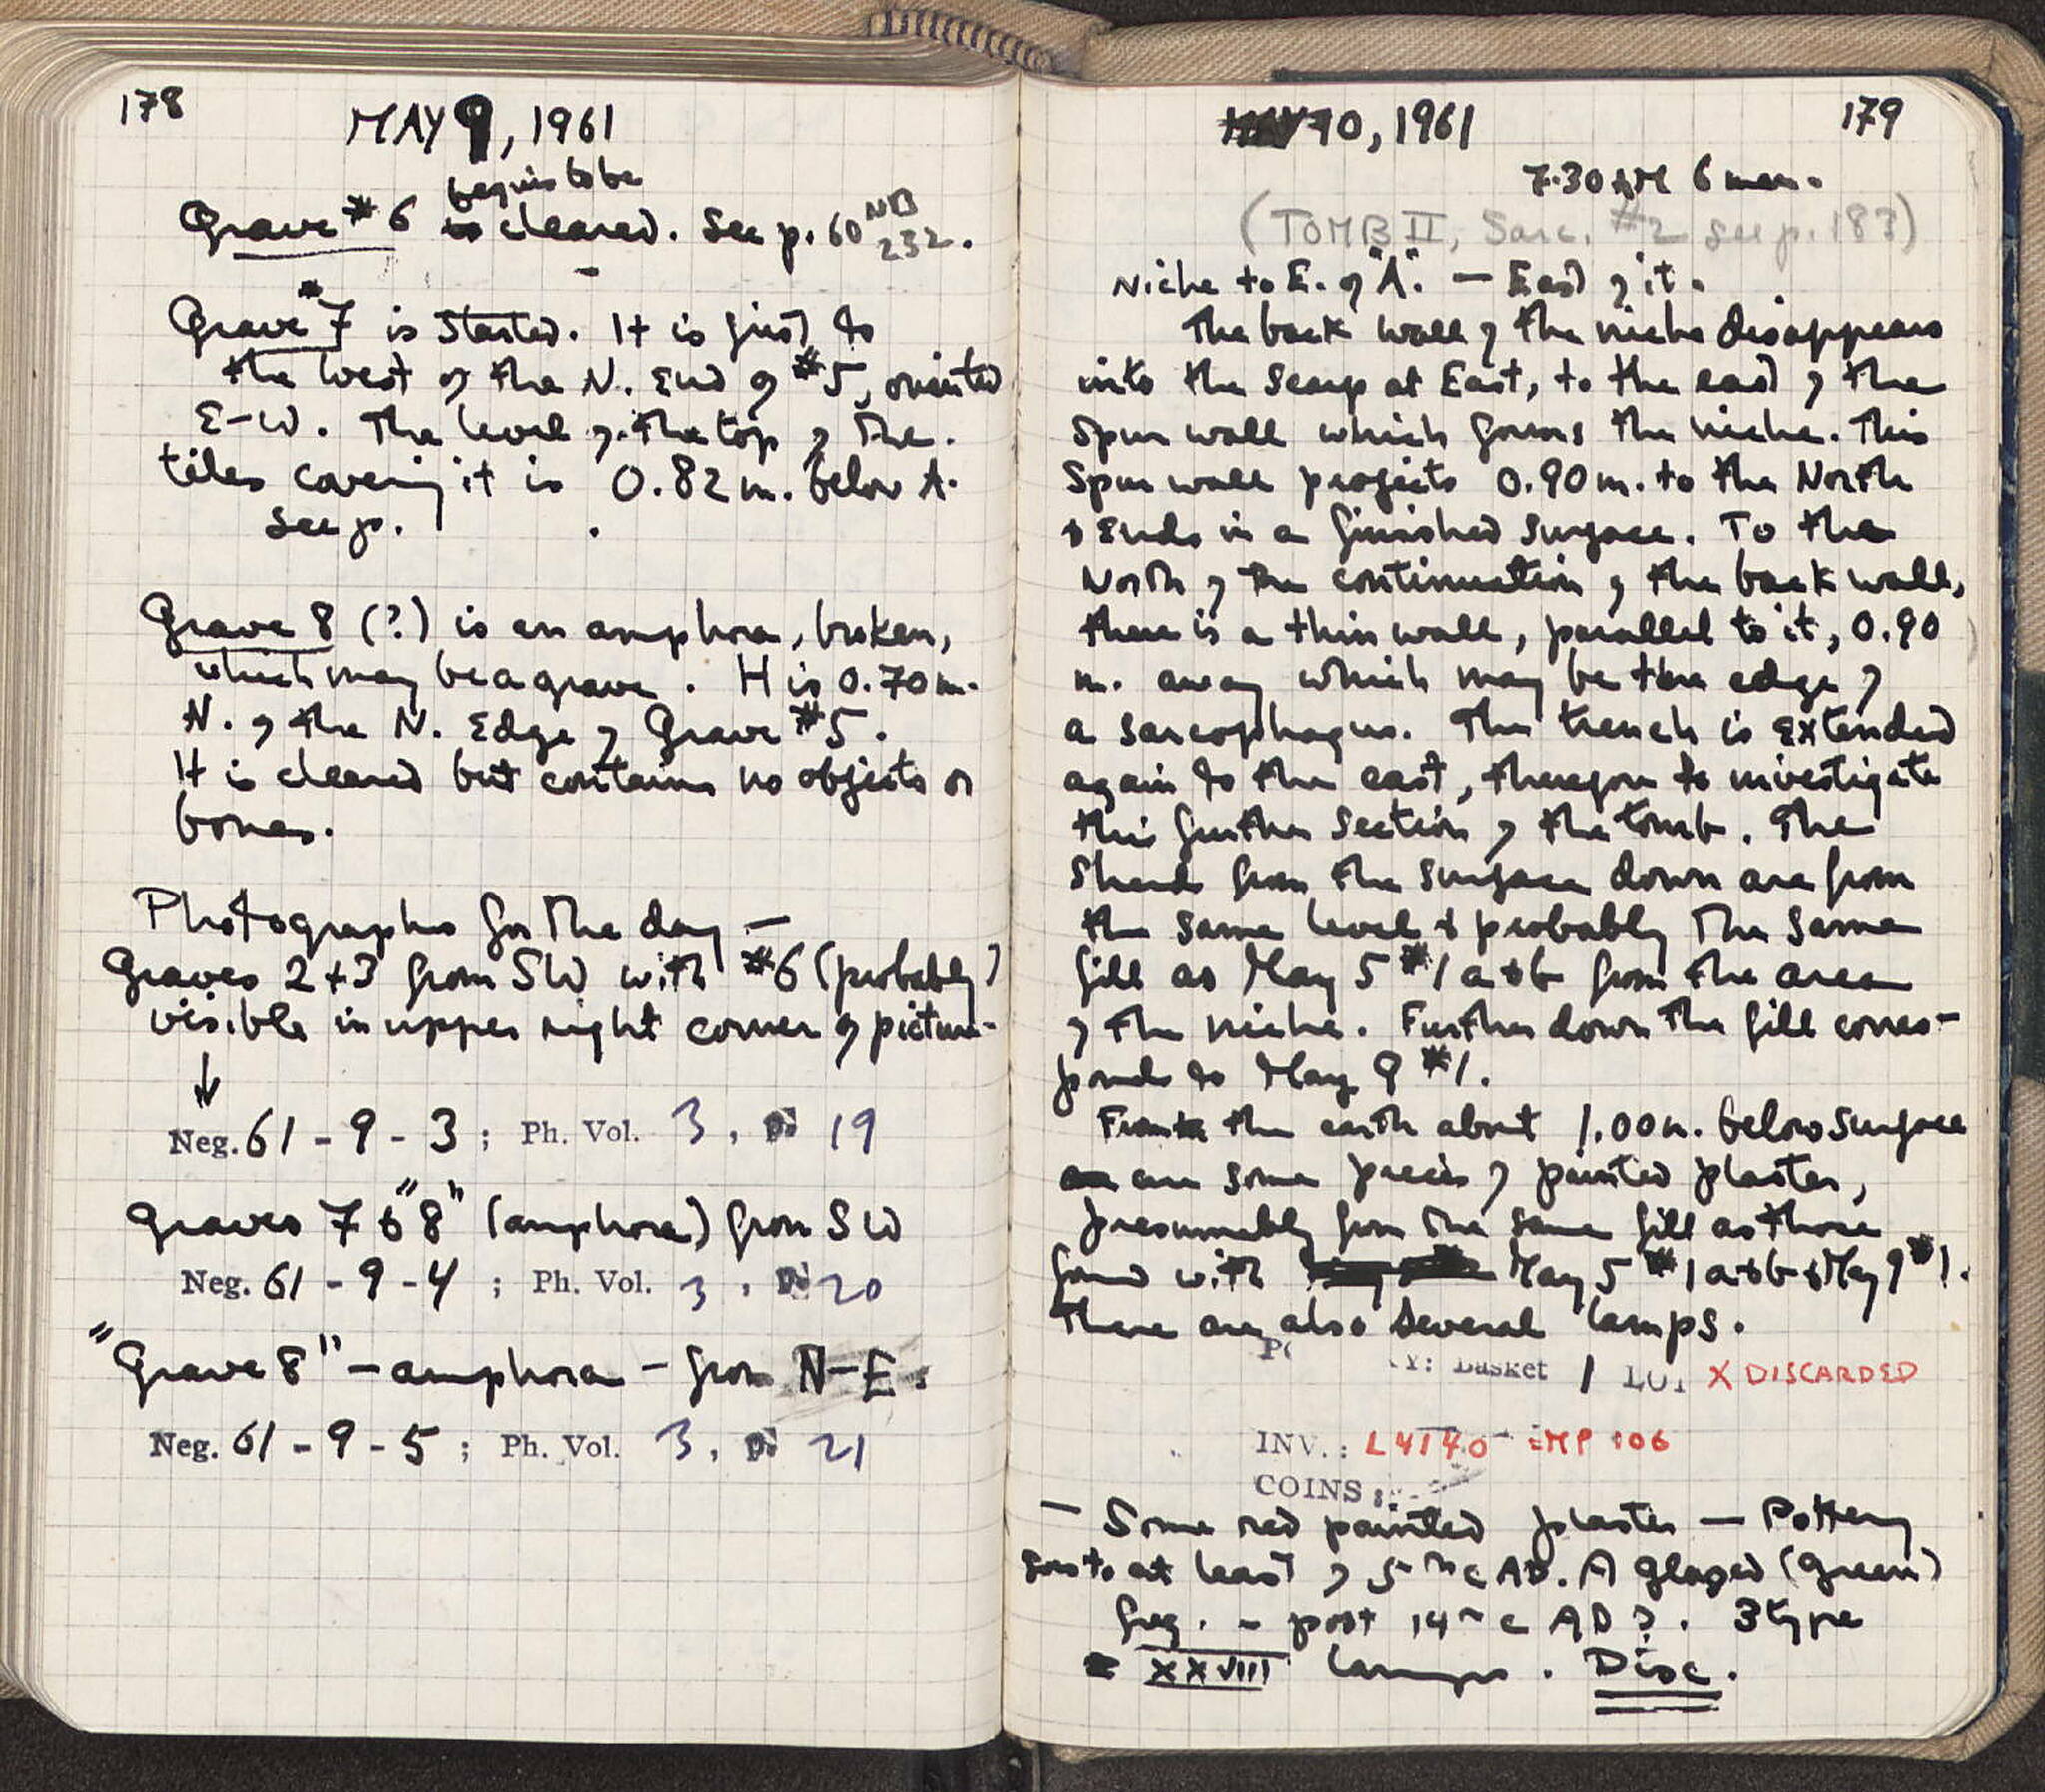 178
MAY 9, 1961
begins to be
Grave #6 is cleared. See p. 60 NB 232.
Grave #7 is started. It is just to
the west of the N. End of #5, oriented
E-W. The level of the top of the
tiles covering it is 0.82 m. below A.
See p.
Grave 8 (?) is an amphora, broken,
which may be a grave. It is 0.70 m.
N. of the N. Edge of Grave #5.
It is cleared but contains no objects or
bones.
Photographs for the day —
Graves 2+3 from SW with #6 (probably)
visible in upper right corner of picture.
↓
Neg. 61 - 9 - 3 ; Ph. Vol. 3, 19
Graves 7 & "8" (amphora) from SW
Neg. 61 - 9 - 4 ; Ph. Vol. 3, 20
"Grave 8" — amphora — from N-E.
Neg. 61 - 9 - 5 ; Ph. Vol. 3, 21
179
MAY 10, 1961
7.30 AM 6 men.
(TOMB II, Sarc. #2 see p. 183)
Niche to E. of "A". — East of it.
The back wall of the niche disappears
into the scarp at East, to the east of the
spur wall which forms the niche. This
Spur wall projects 0.90 m. to the North
& Ends in a finished surface. To the
North of the continuation of the back wall,
there is a thin wall, parallel to it, 0.90
m. away which may be the edge of
a sarcophagus. The trench is extended
again to the east, therefore to investigate
this further section of the tomb. The
Sherds from the surface down are from
the same level & probably the same
fill as May 5 #1 a & b from the area
of the niche. Further down the fill corres-
ponds to May 9 #1.
From the earth about 1.00 m. below surface
are some pieces of painted plaster,
presumably from the same fill as those
found with May 5 #1 a & b & May 9 #1.
There are also several lamps.
Basket 1 X DISCARDED
INV.: L4140 = MP 106
COINS:
— Some red painted plaster — Pottery
goes to at least of 5th c AD. A glazed (green)
frag. - post 14th c AD?. 3 type
XXVIII lamps. Disc.